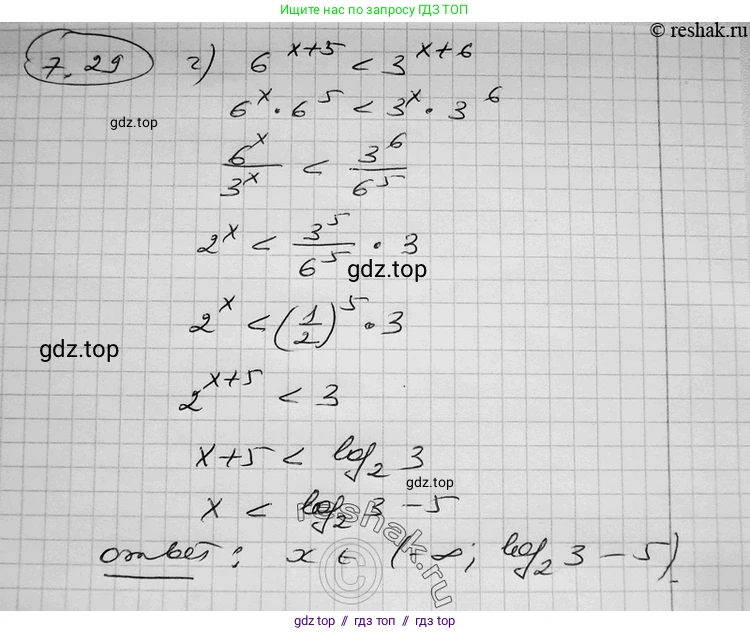 Самые лучшие решения по запросу ГДЗ ТОП
© reshak.ru
7.29 г) 6^(x+5) < 3^(x+6)
6^x · 6^5 < 3^x · 3^6
gdz.top
6^x / 3^x < 3^6 / 6^5
2^x < 3^5 / 6^5 · 3
gdz.top
2^x < (1/2)^5 · 3
gdz.top
2^(x+5) < 3
x+5 < log₂ 3
gdz.top
x < log₂ 3 − 5
reshak.ru
ответ: x ∈ (−∞; log₂ 3 − 5)
©
gdz.top // gdz.top // gdz.top